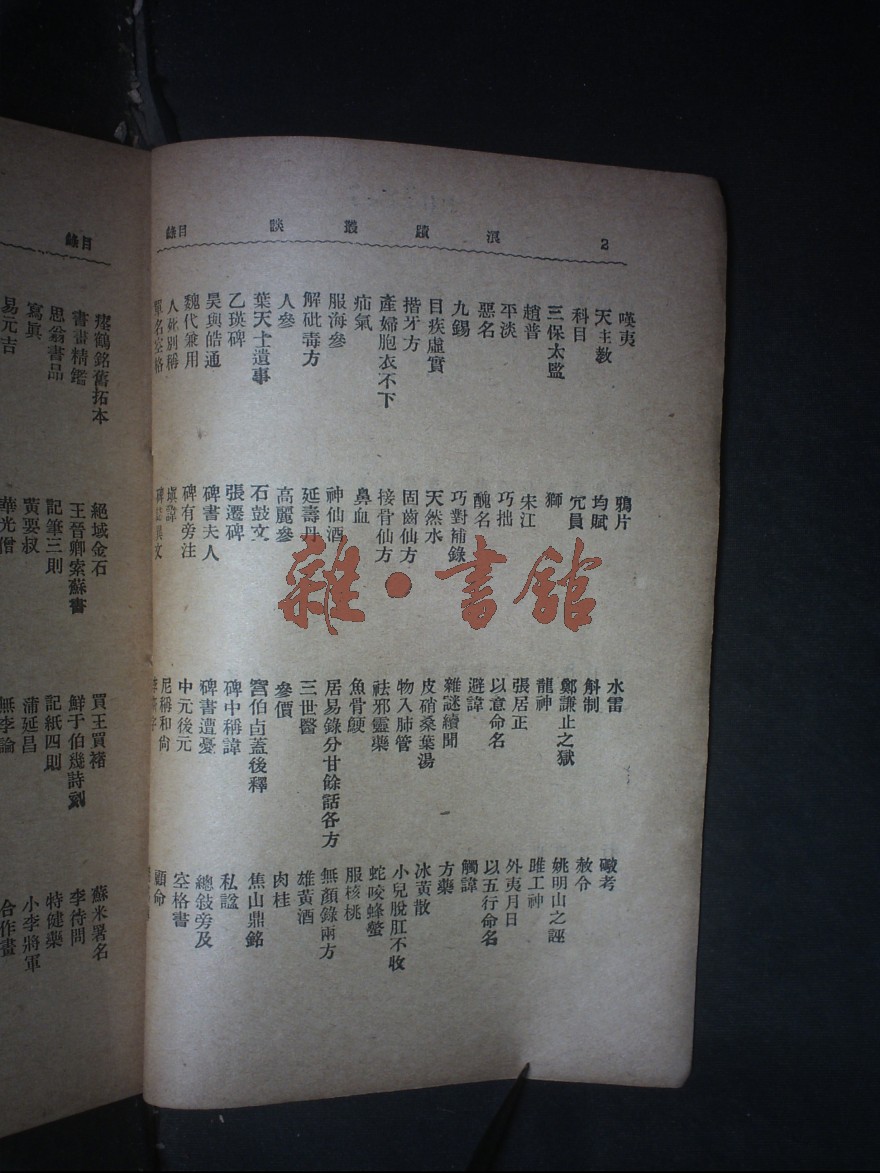 2 浪蹟叢談 目錄
嘆夷 鴉片 水雷 礮考
天主教 均賦 斛制 赦令
科目 冗員 鄭謙止之獄 姚明山之誣
三保太監 獅 龍神 雎工神
趙普 宋江 張居正 外夷月日
平淡 巧拙 以意命名 以五行命名
惡名 醜名 避諱 觸諱
九錫 巧對補錄 雜謎續聞 方藥
目疾虛實 天然水 皮硝桑葉湯 冰黃散
揩牙方 固齒仙方 物入肺管 小兒脫肛不收
產婦胞衣不下 接骨仙方 祛邪靈藥 蛇咬蜂螫
疝氣 鼻血 魚骨鯁 服核桃
服海參 神仙酒 居易錄分甘餘話各方 無顏錄兩方
解砒毒方 延壽丹 三世醫 雄黃酒
人參 高麗參 參價 肉桂
葉天士遺事 石鼓文 宮伯卣蓋後釋 焦山鼎銘
乙瑛碑 張遷碑 碑中稱諱 私諡
昊與皓通 碑書夫人 碑書遭憂 總敍旁及
魏代兼用 碑有旁注 中元後元 空格書
人死別稱 填諱 尼稱和尙 顧命
單名空格 碑誌異文
目錄
瘞鶴銘舊拓本 絕域金石 買王買褚 蘇米署名
書畫精鑑 王晉卿索蘇書 鮮于伯幾詩 李待問
思翁書品 記筆三則 記紙四則 特健藥
寫眞 黃要叔 蒲延昌 小李將軍
易元吉 華光僧 無李論 合作畫
雜·書館